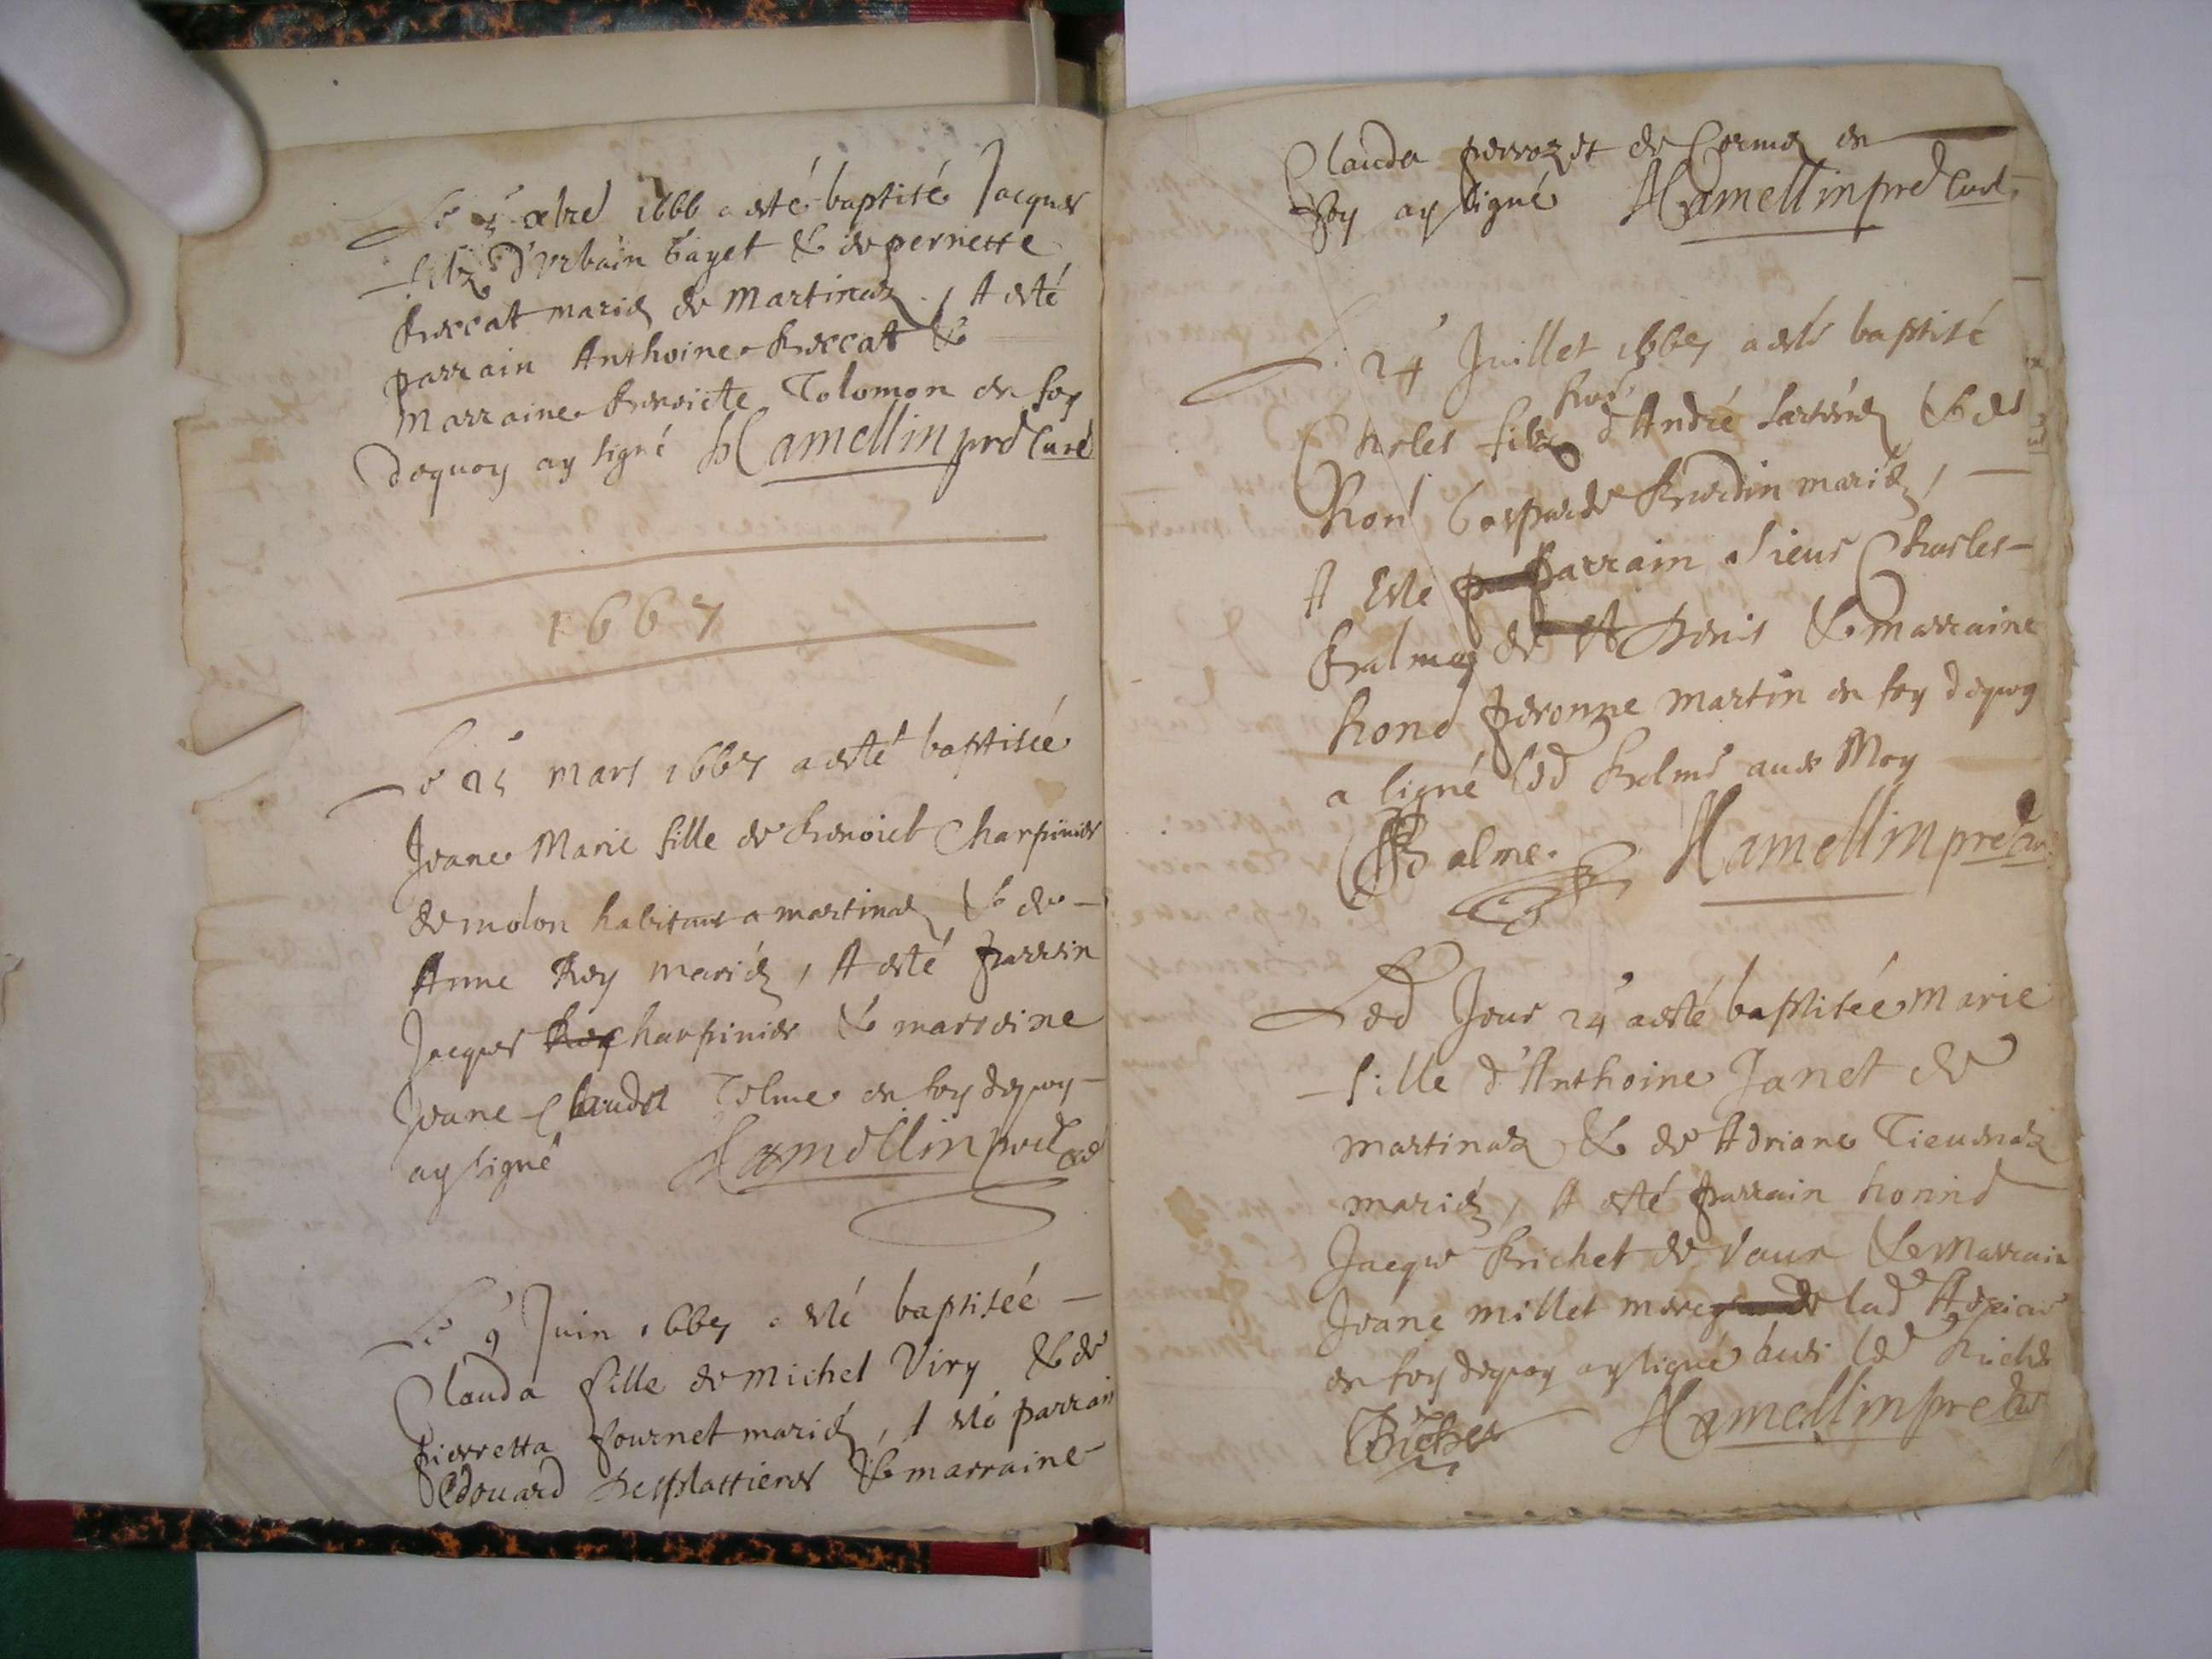 Le 5 xbre 1666 a esté baptisé Jacques
filz d'Urbain Gayet & de pernette
Boccat mariez de Martinaz, A esté
parrain Anthoine Boccat &
Marraine Benoicte Tolomon en foy
dequoy ay signé Hamellin pre Curé
1667
Le 25 mars 1667 a esté baptisée
Jeane Marie fille de Benoict Charpinier
de molon habitant a martinaz & de
Anne Rey mariez, A esté parrain
Jacques charpinier & marreine
Jeane Clauda Tolme en foy dequoy
ay signé Hamellin pre Curé
Le 9 Juin 1667 a esté baptisée
Clauda fille de Michel Viry & de
pierretta fournet mariez, A esté parrain
Edouard Desplattieres & marraine
Clauda pervozet de Cormoz en
foy ay signé Hamellin pre Curé
Le 24 Juillet 1667 a esté baptisé
hon
Charles filz d'André & de
hon Gasparde mariez,
A Este parrain sieur Charles
Balme de St Denis & marraine
hono peronne Martin en foy dequoy
a signé led Balme avec Moy
Balme. Hamellin pre Cur
Led Jour 24 a esté baptisée Marie
fille d'Anthoine Janet de
martinaz & de Adriane Tieuenaz
mariez, A esté parrain
Jacque Brichet de Vaux & Marrain
Jeane millet mere de lad Adriane
en foy dequoy ay signé avec led
Hamellin pre Cur